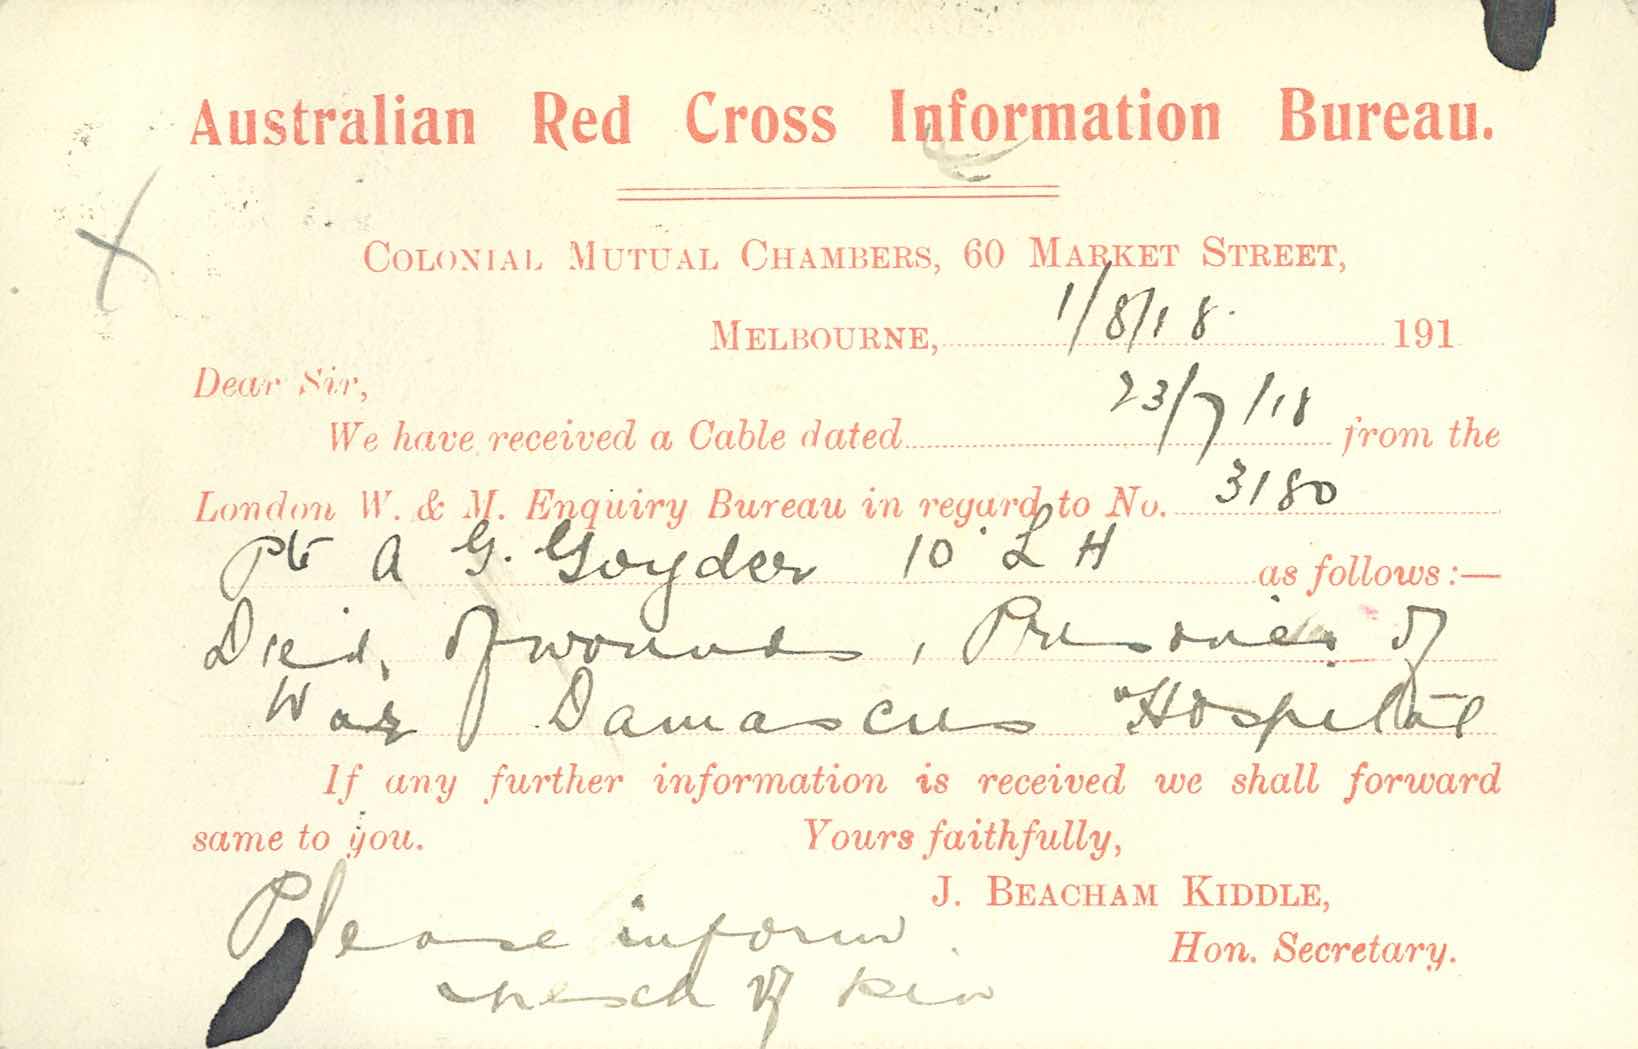 Australian Red Cross Information Bureau.
COLONIAL MUTUAL CHAMBERS, 60 MARKET STREET,
MELBOURNE, 1/8/18. 191
Dear Sir,
We have received a Cable dated 23/7/18 from the
London W. & M. Enquiry Bureau in regard to No. 3180
Pte A G. Goyder 10 LH as follows:—
Died, of wounds, Prisoner of
War Damascus Hospital
If any further information is received we shall forward
same to you. Yours faithfully,
J. BEACHAM KIDDLE,
Hon. Secretary.
Please inform
of kin